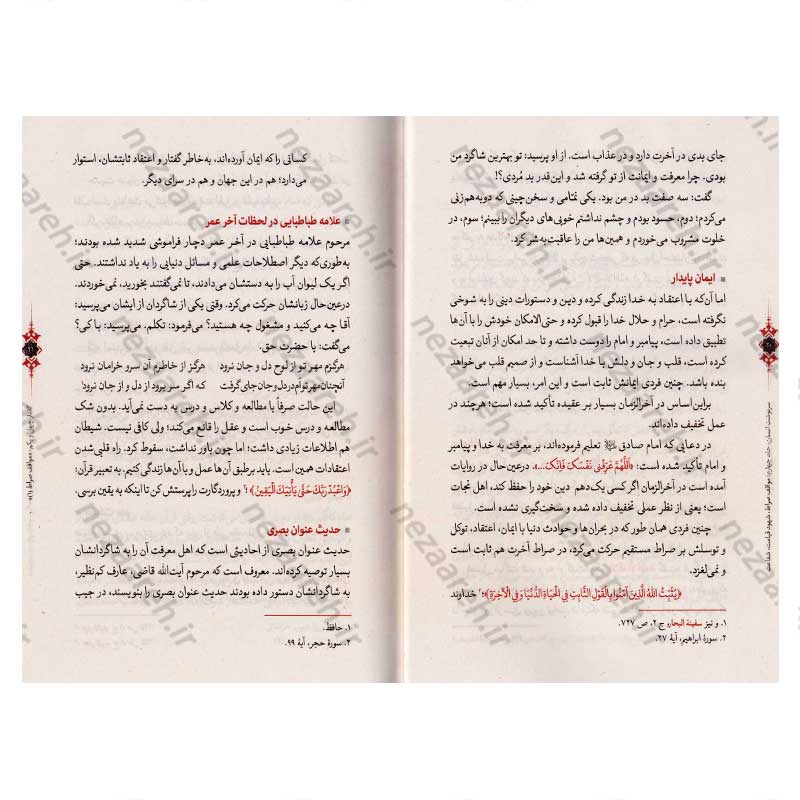 جای بدی در آخرت دارد و در عذاب است. از او پرسید: تو بهترین شاگرد من
بودی. چرا معرفت و ایمانت از تو گرفته شد و این‌قدر بد مُردی؟!
گفت: سه صفت بد در من بود. یکی نمّامی و سخن‌چینی که دوبه‌هم‌زنی
می‌کردم؛ دوم، حسود بودم و چشم نداشتم خوبی‌های دیگران را ببینم؛ سوم، در
خلوت مشروب می‌خوردم و همین‌ها من را عاقبت‌به‌شر کرد.۱
ایمان پایدار
اما آن‌که با اعتقاد به خدا زندگی کرده و دین و دستورات دینی را به شوخی
نگرفته است، حرام و حلال خدا را قبول کرده و حتی‌الامکان خودش را با آن‌ها
تطبیق داده است، پیامبر و امام را دوست داشته و تا حد امکان از آنان تبعیت
کرده است، قلب و جان و دلش با خدا آشناست و از صمیم قلب می‌خواهد
بنده باشد. چنین فردی ایمانش ثابت است و این امر، بسیار مهم است.
براین‌اساس در آخرالزمان بسیار بر عقیده تأکید شده است؛ هرچند در
عمل تخفیف داده‌اند.
در دعایی که امام صادق تعلیم فرموده‌اند، بر معرفت به خدا و پیامبر
و امام تأکید شده است: «اَللّٰهُمَّ عَرِّفْنِی نَفْسَکَ فَإِنَّکَ...». درعین‌حال در روایات
آمده است در آخرالزمان اگر کسی یک‌دهم دین خود را حفظ کند، اهل نجات
است؛ یعنی از نظر عملی تخفیف داده شده و سخت‌گیری نشده است.
چنین فردی همان طور که در بحران‌ها و حوادث دنیا با ایمان، اعتقاد، توکل
و توسلش بر صراط مستقیم حرکت می‌کرد، در صراط آخرت هم ثابت است
و نمی‌لغزد.
﴿یُثَبِّتُ اللهُ الَّذِینَ آمَنُوا بِالْقَوْلِ الثَّابِتِ فِی الْحَیَاةِ الدُّنْیَا وَفِی الْآخِرَةِ﴾؛۲ خداوند
۱. و نیز سفینة البحار، ج ۲، ص ۷۲۷.
۲. سورهٔ ابراهیم، آیهٔ ۲۷.
سرنوشت انسان، جلد چهارم: مواقف صراط، شهود قیامت، شفاعت
کسانی را که ایمان آورده‌اند، به‌خاطر گفتار و اعتقاد ثابتشان، استوار
می‌دارد؛ هم در این جهان و هم در سرای دیگر.
علامه طباطبایی در لحظات آخر عمر
مرحوم علامه طباطبایی در آخر عمر دچار فراموشی شدید شده بودند؛
به‌طوری‌که دیگر اصطلاحات علمی و مسائل دنیایی را به یاد نداشتند. حتی
اگر یک لیوان آب را به دستشان می‌دادند، تا نمی‌گفتند بخورید، نمی‌خوردند.
درعین‌حال زبانشان حرکت می‌کرد. وقتی یکی از شاگردان از ایشان می‌پرسید:
آقا چه می‌کنید و مشغول چه هستید؟ می‌فرمود: تکلم. می‌پرسید: با کی؟
می‌گفت: با حضرت حق.
هرگزم مهر تو از لوح دل و جان نرود هرگز از خاطرم آن سرو خرامان نرود
آنچنان مهر توام در دل و جان جای گرفت که اگر سر برود از دل و از جان نرود۱
این حالت صرفاً با مطالعه و کلاس و درس به دست نمی‌آید. بدون شک
مطالعه و درس خوب است و عقل را قانع می‌کند؛ ولی کافی نیست. شیطان
هم اطلاعات زیادی داشت؛ اما چون باور نداشت، سقوط کرد. راه قلبی‌شدن
اعتقادات همین است. باید برطبق آن‌ها عمل و با آن‌ها زندگی کنیم. به تعبیر قرآن:
﴿وَاعْبُدْ رَبَّکَ حَتَّی یَأْتِیَکَ الْیَقِینُ﴾؛۲ و پروردگارت را پرستش کن تا اینکه به یقین برسی.
حدیث عنوان بصری
حدیث عنوان بصری از احادیثی است که اهل معرفت آن را به شاگردانشان
بسیار توصیه کرده‌اند. معروف است که مرحوم آیت‌الله قاضی، عارف کم‌نظیر،
به شاگردانشان دستور داده بودند حدیث عنوان بصری را بنویسند، در جیب
۱. حافظ.
۲. سورهٔ حجر، آیهٔ ۹۹.
گفتار چهل و یکم: «مواقف صراط (۱)»
nezaareh.ir